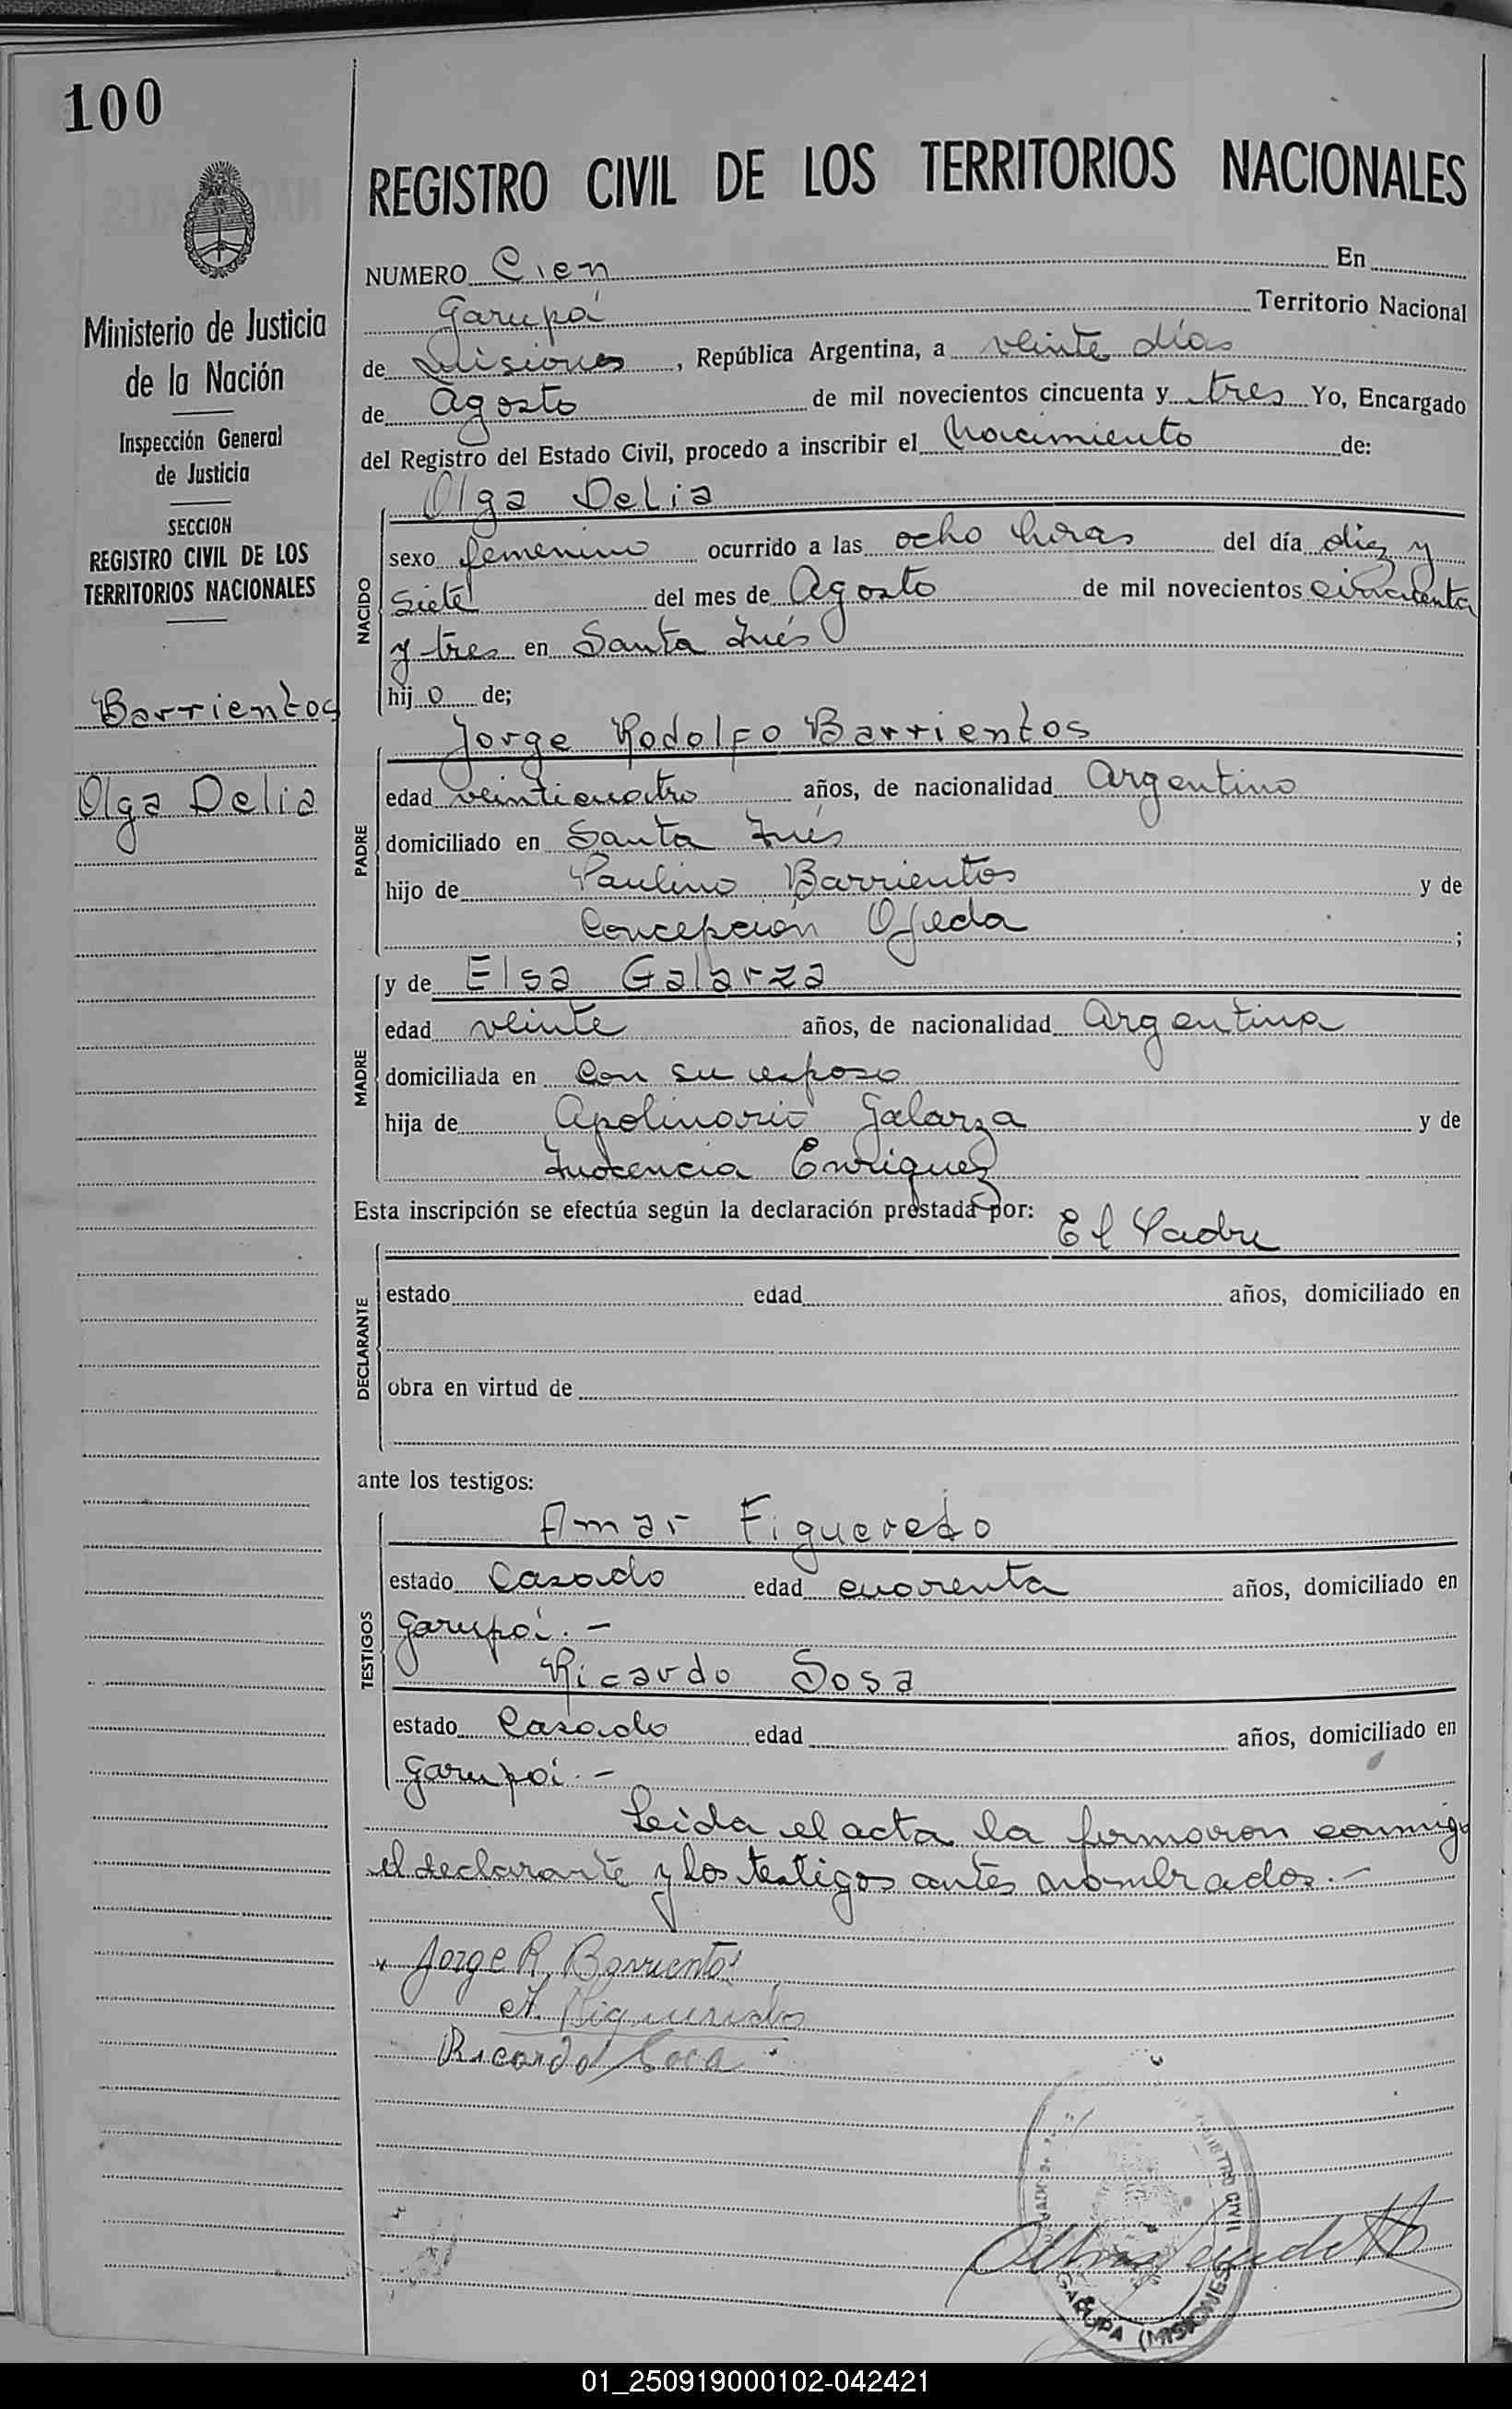 100
Ministerio de Justicia
de la Nación
Inspección General
de Justicia
SECCION
REGISTRO CIVIL DE LOS
TERRITORIOS NACIONALES
Barrientos
Olga Delia
REGISTRO CIVIL DE LOS TERRITORIOS NACIONALES
NUMERO Cien En
Garupá Territorio Nacional
de Misiones, República Argentina, a veinte días
de Agosto de mil novecientos cincuenta y tres Yo, Encargado
del Registro del Estado Civil, procedo a inscribir el Nacimiento de:
Olga Delia
NACIDO
sexo femenino ocurrido a las ocho horas del día diez y
siete del mes de Agosto de mil novecientos cincuenta
y tres en Santa Inés
hij o de;
Jorge Rodolfo Barrientos
PADRE
edad veinticuatro años, de nacionalidad Argentino
domiciliado en Santa Inés
hijo de Paulino Barrientos y de
Concepción Ojeda ;
y de Elsa Galarza
MADRE
edad veinte años, de nacionalidad Argentina
domiciliada en con su esposo
hija de Apolinario Galarza y de
Inocencia Enriquez
Esta inscripción se efectúa según la declaración prestada por: El Padre
DECLARANTE
estado edad años, domiciliado en
obra en virtud de
ante los testigos:
Amar Figueredo
TESTIGOS
estado Casado edad cuarenta años, domiciliado en
Garupá.-
Ricardo Sosa
estado Casado edad años, domiciliado en
Garupá.-
Leida el acta la firmaron conmigo
el declarante y los testigos antes nombrados.-
Jorge R. Barrientos
A. Figueredo
Ricardo Sosa
REGISTRO CIVIL
GARUPA (MISIONES)
01_250919000102-042421